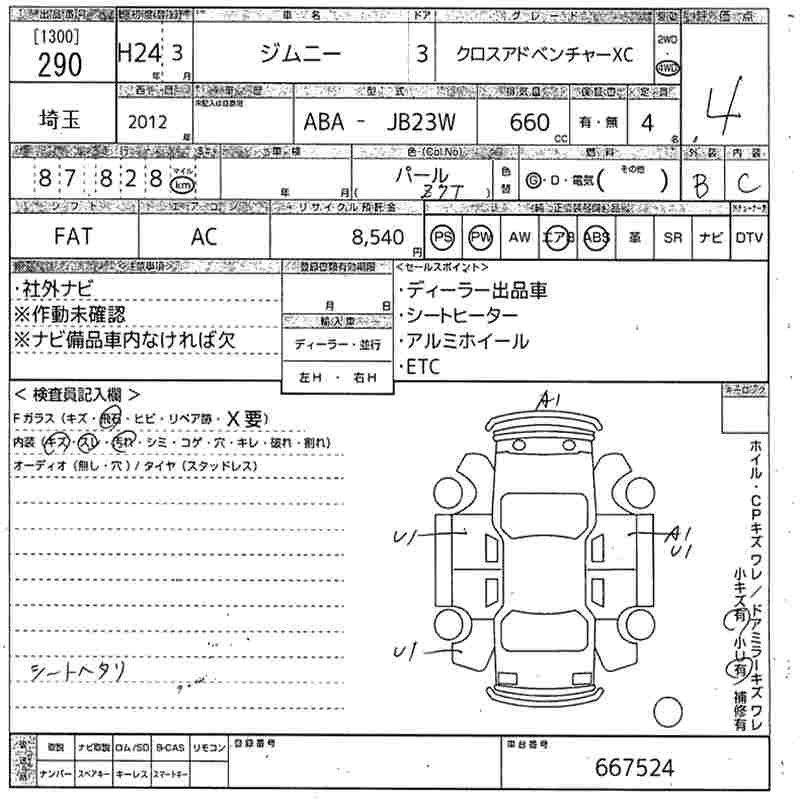 出品車No. 初度(登録) 車名 ドア グレード 駆動 評価点
[1300] 290 H24年 3月 ジムニー 3 クロスアドベンチャーXC 2WD・4WD 4
西暦 車歴 型式 排気量 保証書 定員
埼玉 2012年 未記入は自家用 ABA - JB23W 660cc 有・無 4名
車検 色(Col.No) 燃料 外装 内装
87,828 マイル km 年 月 パール ( Z7T ) 色替 G・D・電気(その他 ) B C
シフト エアコン リサイクル預託金
FAT AC 8,540円 PS PW AW エアB ABS 革 SR ナビ DTV
<注意事項> 登録書類有効期限 <セールスポイント>
・社外ナビ
※作動未確認
※ナビ備品車内なければ欠
月 日
輸入車
ディーラー・並行
左H ・ 右H
・ディーラー出品車
・シートヒーター
・アルミホイール
・ETC
< 検査員記入欄 >
Fガラス (キズ・飛石・ヒビ・リペア跡・X要)
内装 (キズ・スレ・汚れ・シミ・コゲ・穴・キレ・破れ・割れ)
オーディオ (無し・穴) / タイヤ (スタッドレス)
シートヘタリ
A1
U1
A1
U1
U1
キャロジック
ホイル・CPキズワレ/ドアミラーキズワレ
小キズ有/小U有/補修有
後送品 取説 ナビ取説 ロム/SD B-CAS リモコン
ナンバー スペアキー キーレス スマートキー
登録番号
車台番号
667524